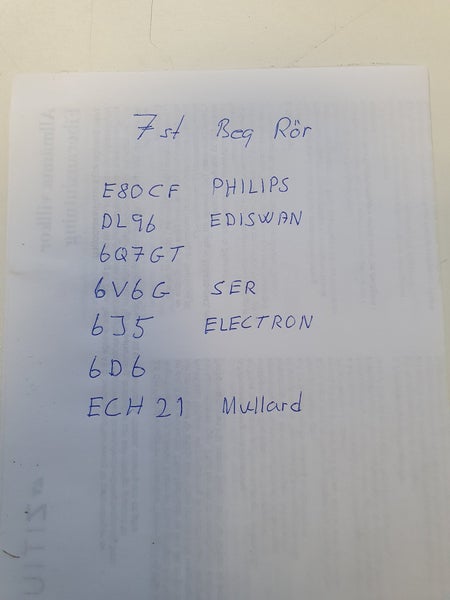 7st Beg Rör
E80CF PHILIPS
DL96 EDISWAN
6Q7GT
6V6G SER
6J5 ELECTRON
6D6
ECH 21 Mullard